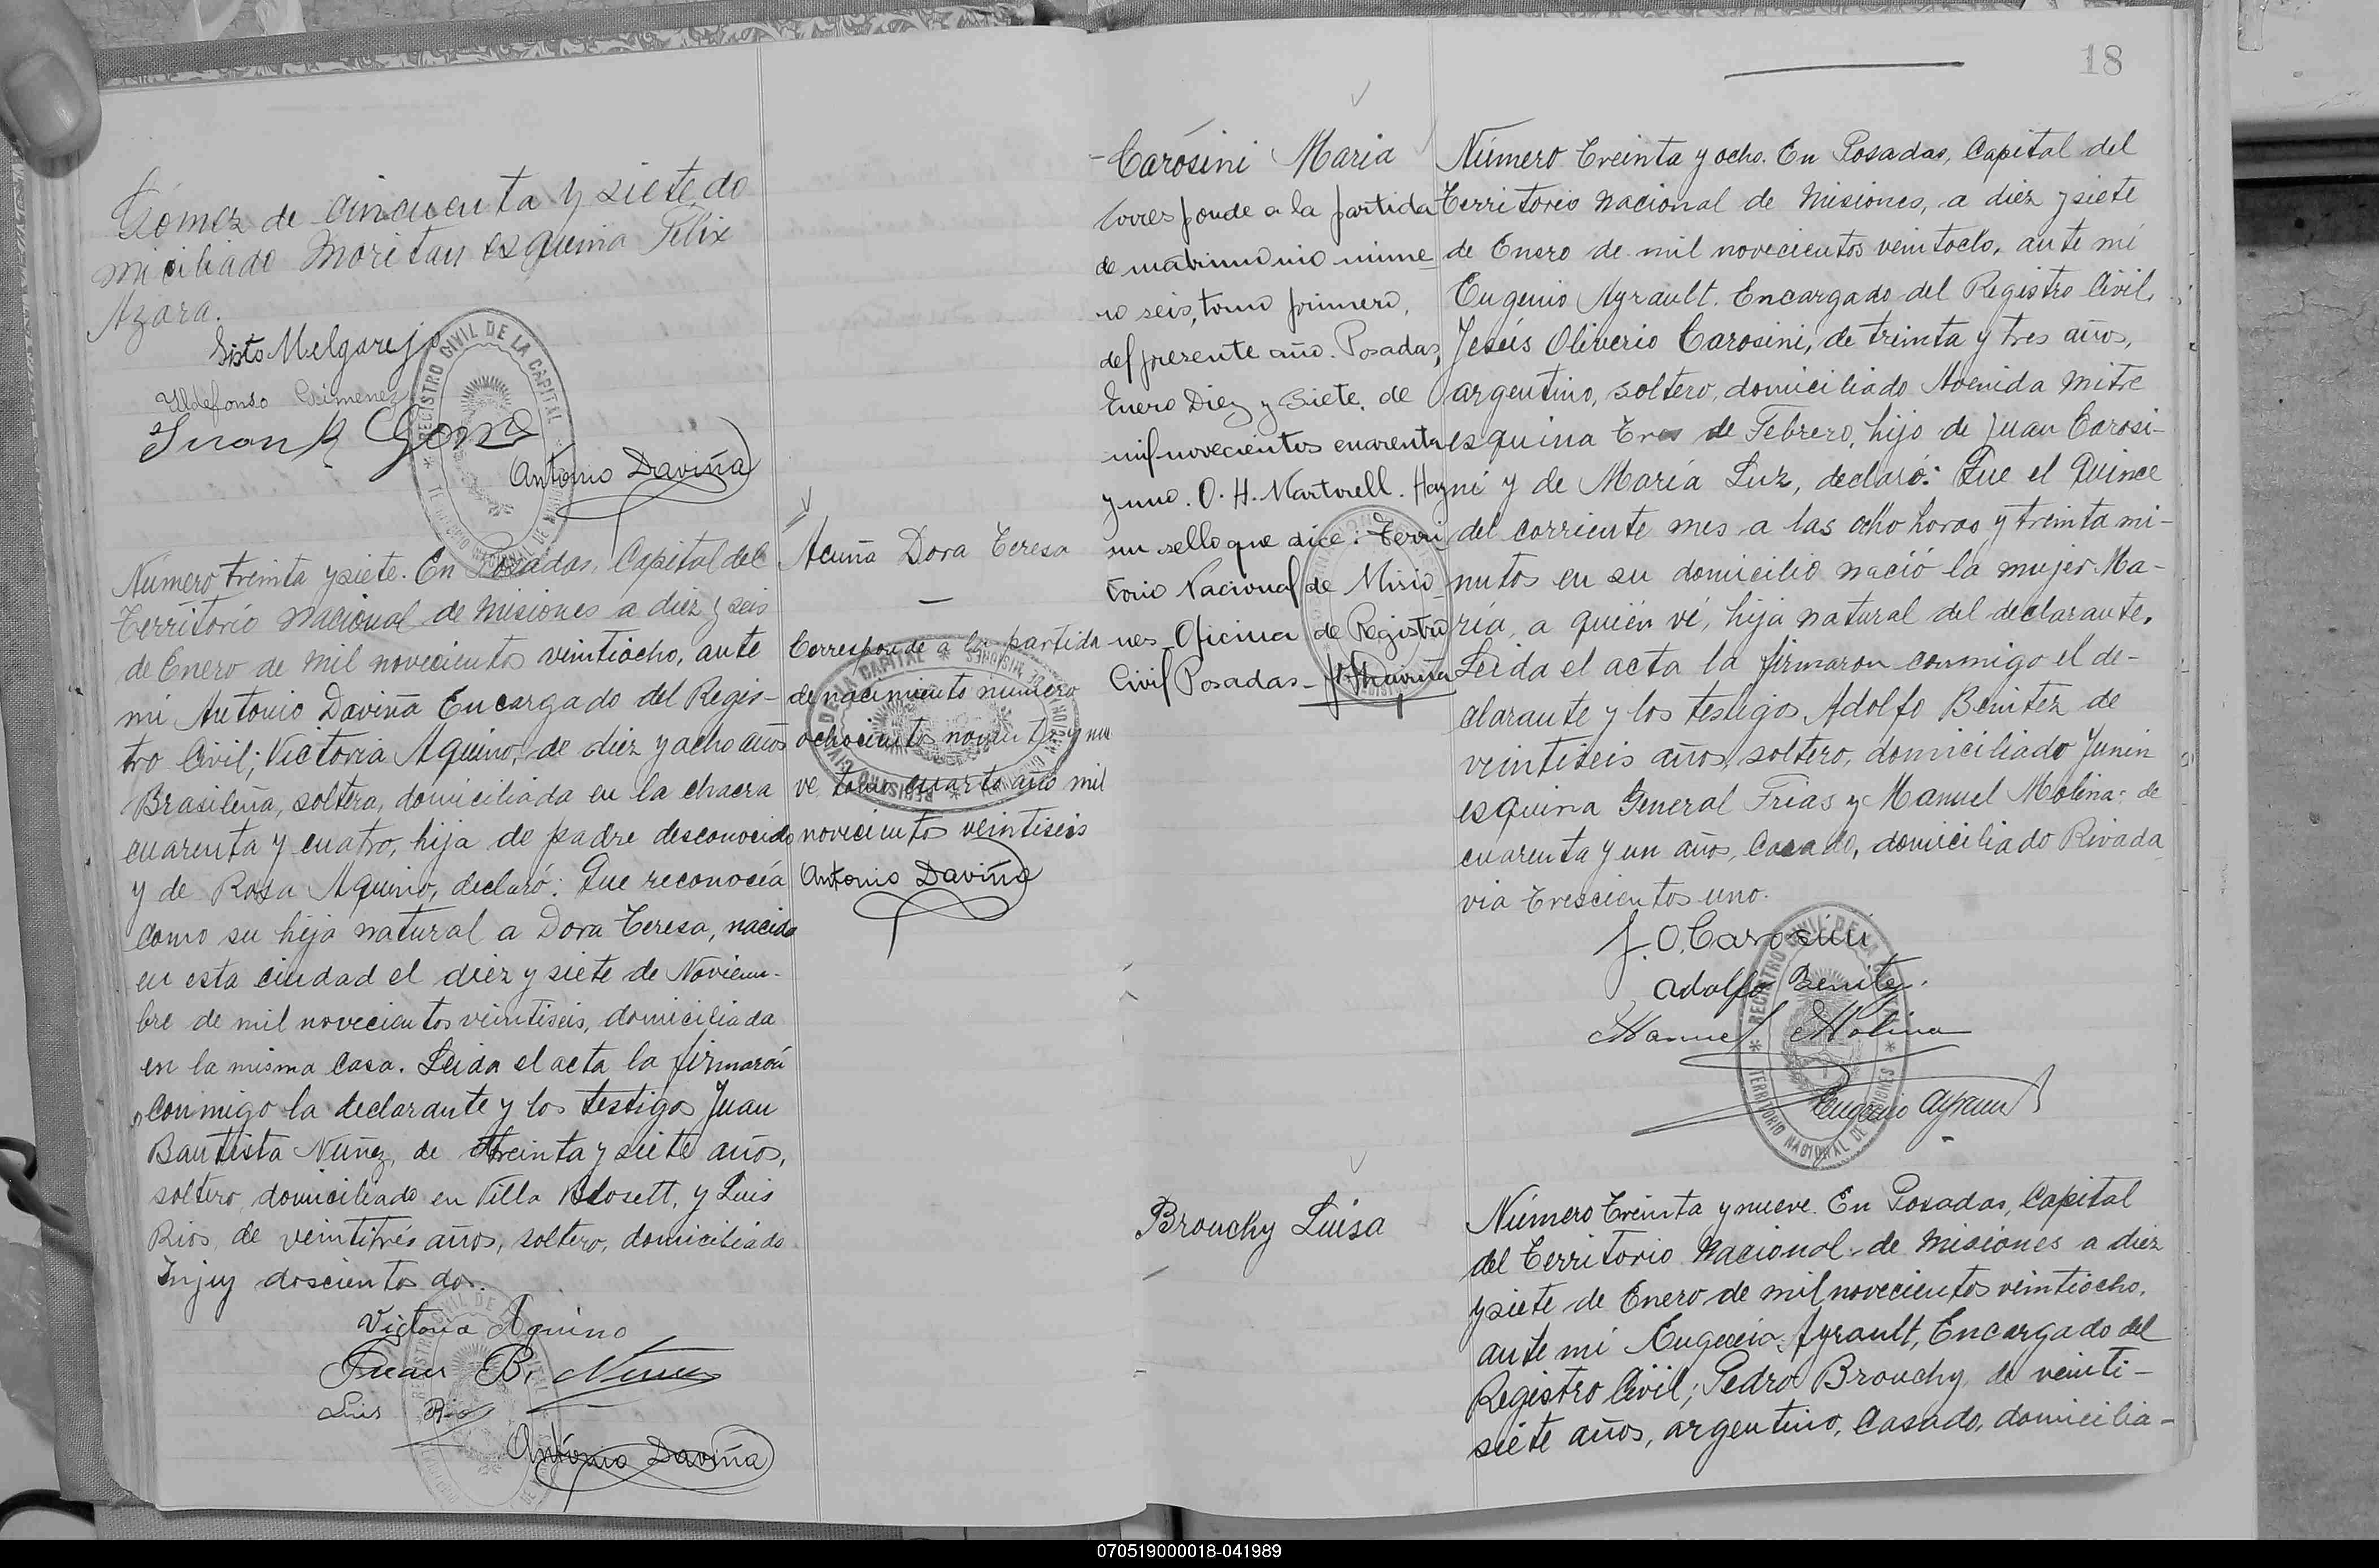 Gómez de cincuenta y siete do
miciliado Moritan esquina Félix
Azara.
Sisto Melgarejo
Ildefonso Gimenez
Juan R Gomez
Antonio Daviña
REGISTRO CIVIL DE LA CAPITAL
Número treinta y siete. En Posadas, Capital del
Territorio Nacional de Misiones a diez y seis
de Enero de mil novecientos veintiocho, ante
mi Antonio Daviña Encargado del Regis-
tro Civil; Victoria Aquino, de diez y ocho años
Brasileña, soltera, domiciliada en la chacra
cuarenta y cuatro, hija de padre desconocido
y de Rosa Aquino, declaró: Que reconocía
como su hija natural a Dora Teresa, nacida
en esta ciudad el diez y siete de Noviem-
bre de mil novecientos veintiseis, domiciliada
en la misma casa. Leida el acta la firmarón
conmigo la declarante y los testigos Juan
Bautista Nuñez, de treinta y siete años,
soltero, domiciliado en Villa Blosett, y Luis
Rios, de veintitrés años, soltero, domiciliado
Jujuy doscientos dos.
Victoria Aquino
Juan B. Nuñez
Luis Rios
Antonio Daviña
Acuña Dora Teresa
Corresponde a la partida
de nacimiento número
ochocientos noventa y nue
ve tomo cuarto año mil
novecientos veintiseis
Antonio Daviña
18
Carosini Maria
Corresponde a la partida
de matrimonio núme-
ro seis, tomo primero,
del presente año. Posadas,
Enero Diez y Siete, de
mil novecientos cuarenta
y uno. O. H. Martorell. Hay
un sello que dice: Terri
torio Nacional de Misio-
nes Oficina de Registro
Civil Posadas - A. Daviña
Número Treinta y ocho. En Posadas, Capital del
Territorio Nacional de Misiones, a diez y siete
de Enero de mil novecientos veintocho, ante mí
Eugenio Ayrault. Encargado del Registro Civil,
Jesús Oliverio Carosini, de treinta y tres años,
argentino, soltero, domiciliado Avenida Mitre
esquina Tres de Febrero, hijo de Juan Carosi-
ni y de María Luz, declaró: Que el Quince
del corriente mes a las ocho horas y treinta mi-
nutos en su domicilio nació la mujer Ma-
ría, a quién vé, hija natural del declarante.
Leida el acta la firmaron conmigo el de-
clarante y los testigos Adolfo Benitez de
veintiseis años, soltero, domiciliado Junin
esquina General Frias y Manuel Molina: de
cuarenta y un años, Casado, domiciliado Rivada
via Trescientos uno.
J. O. Carosini
Adolfo Benitez.
Manuel Molina
Eugenio Ayrault
REGISTRO CIVIL DE LA CAPITAL
TERRITORIO NACIONAL DE MISIONES
Brouchy Luisa
Número Treinta y nueve. En Posadas, Capital
del Territorio Nacional de Misiones a diez
y siete de Enero de mil novecientos veintiocho,
ante mi Eugenio Ayrault, Encargado del
Registro Civil; Pedro Brouchy, de veinti-
siete años, argentino, casado, domicilia-
070519000018-041989